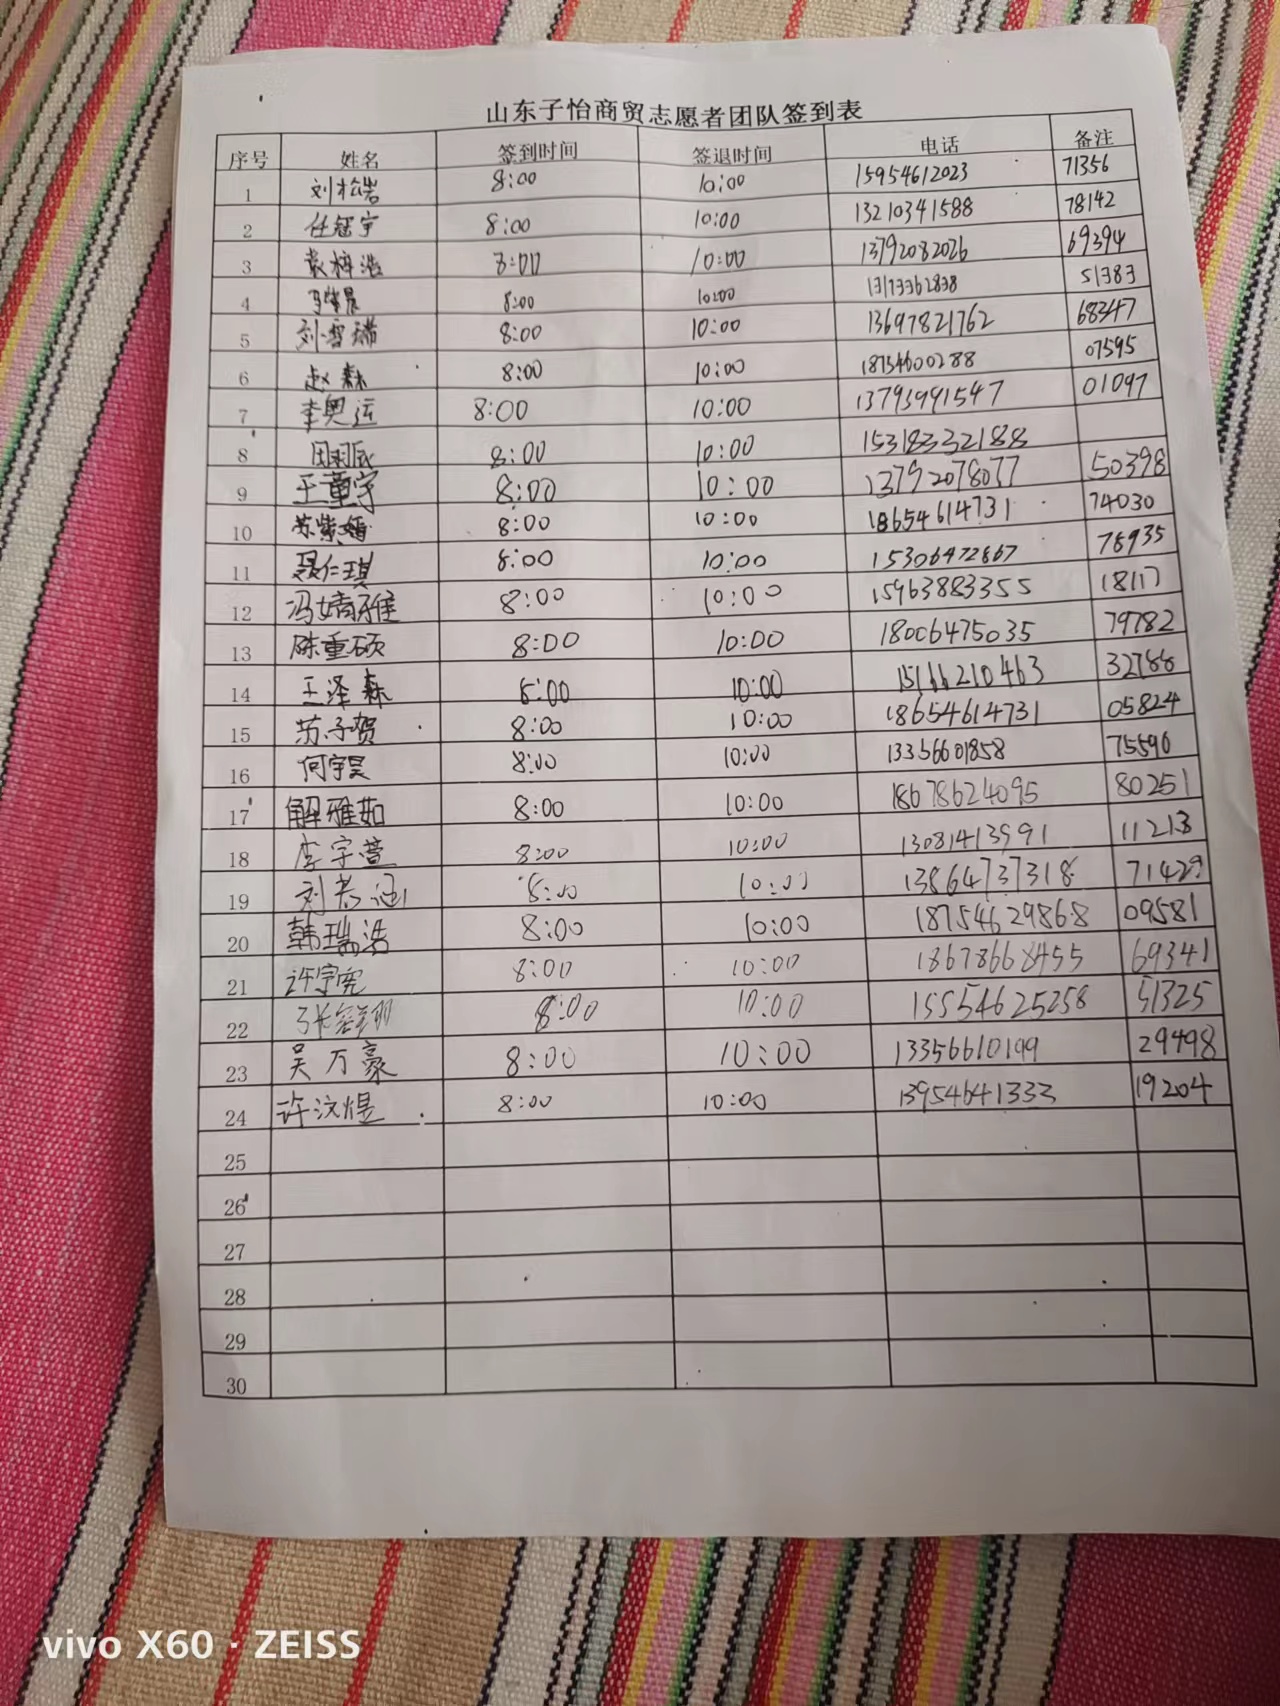 山东子怡商贸志愿者团队签到表
序号 姓名 签到时间 签退时间 电话 备注
1 刘松岩 8:00 10:00 15954612023 71356
2 任冠宇 8:00 10:00 13210341588 78142
3 袁梓浩 8:00 10:00 13792082026 69394
4 8:00 10:00 51383
5 刘雪瑞 8:00 10:00 13697821762 68347
6 赵森 8:00 10:00 18754600288 07595
7 李奥运 8:00 10:00 13793991547 01097
8 8:00 10:00 15318332188
9 王童宇 8:00 10:00 13792078077 50398
10 苏紫嫣 8:00 10:00 18654614731 74030
11 聂仁琪 8:00 10:00 15306472867 78935
12 冯婧雅 8:00 10:00 15963883355 18117
13 陈重硕 8:00 10:00 18006475035 79782
14 王泽森 8:00 10:00 15166210463 32788
15 苏子贺 8:00 10:00 18654614731 05824
16 何宇昊 8:00 10:00 13356601858 75596
17 解雅茹 8:00 10:00 18678624095 80251
18 李宇萱 8:00 10:00 13081413591 11213
19 刘若涵 8:00 10:00 13864737318 71429
20 韩瑞浩 8:00 10:00 18754629868 09581
21 许宇宪 8:00 10:00 18678668455 69341
22 8:00 10:00 15554625258 51325
23 吴万豪 8:00 10:00 13356610199 29498
24 许汶煜 8:00 10:00 13954641333 19204
25
26
27
28
29
30
vivo X60 · ZEISS